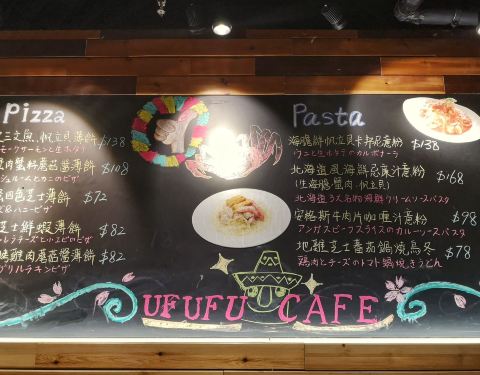 Pizza
三文魚、帆立貝薄餅 $138
モークサーモンと生ホタ
肉蟹粉蘑菇醬薄餅 $108
ッシュルームとカニのピザ
四色芝士薄餅 $72
ズ&ハニーピザ
芝士鮮蝦薄餅 $82
チーズといエビのピザ
烤雞肉蘑菇醬薄餅 $82
グリルチキンピザ
Pasta
海膽鮮帆立貝卡邦尼意粉 $138
ウニと生ホタテのカルボナーラ
北海道風海鮮忌廉汁意粉 $168
(生海膽、蟹肉、帆立貝)
北海道3大名物海鮮クリームソースパスタ
安格斯牛肉片咖喱汁意粉 $78
アンガスビーフスライスのカレーソースパスタ
地雞芝士蕃茄鍋燒烏冬 $78
鶏肉とチーズのトマト鍋焼きうどん
UFUFU CAFE